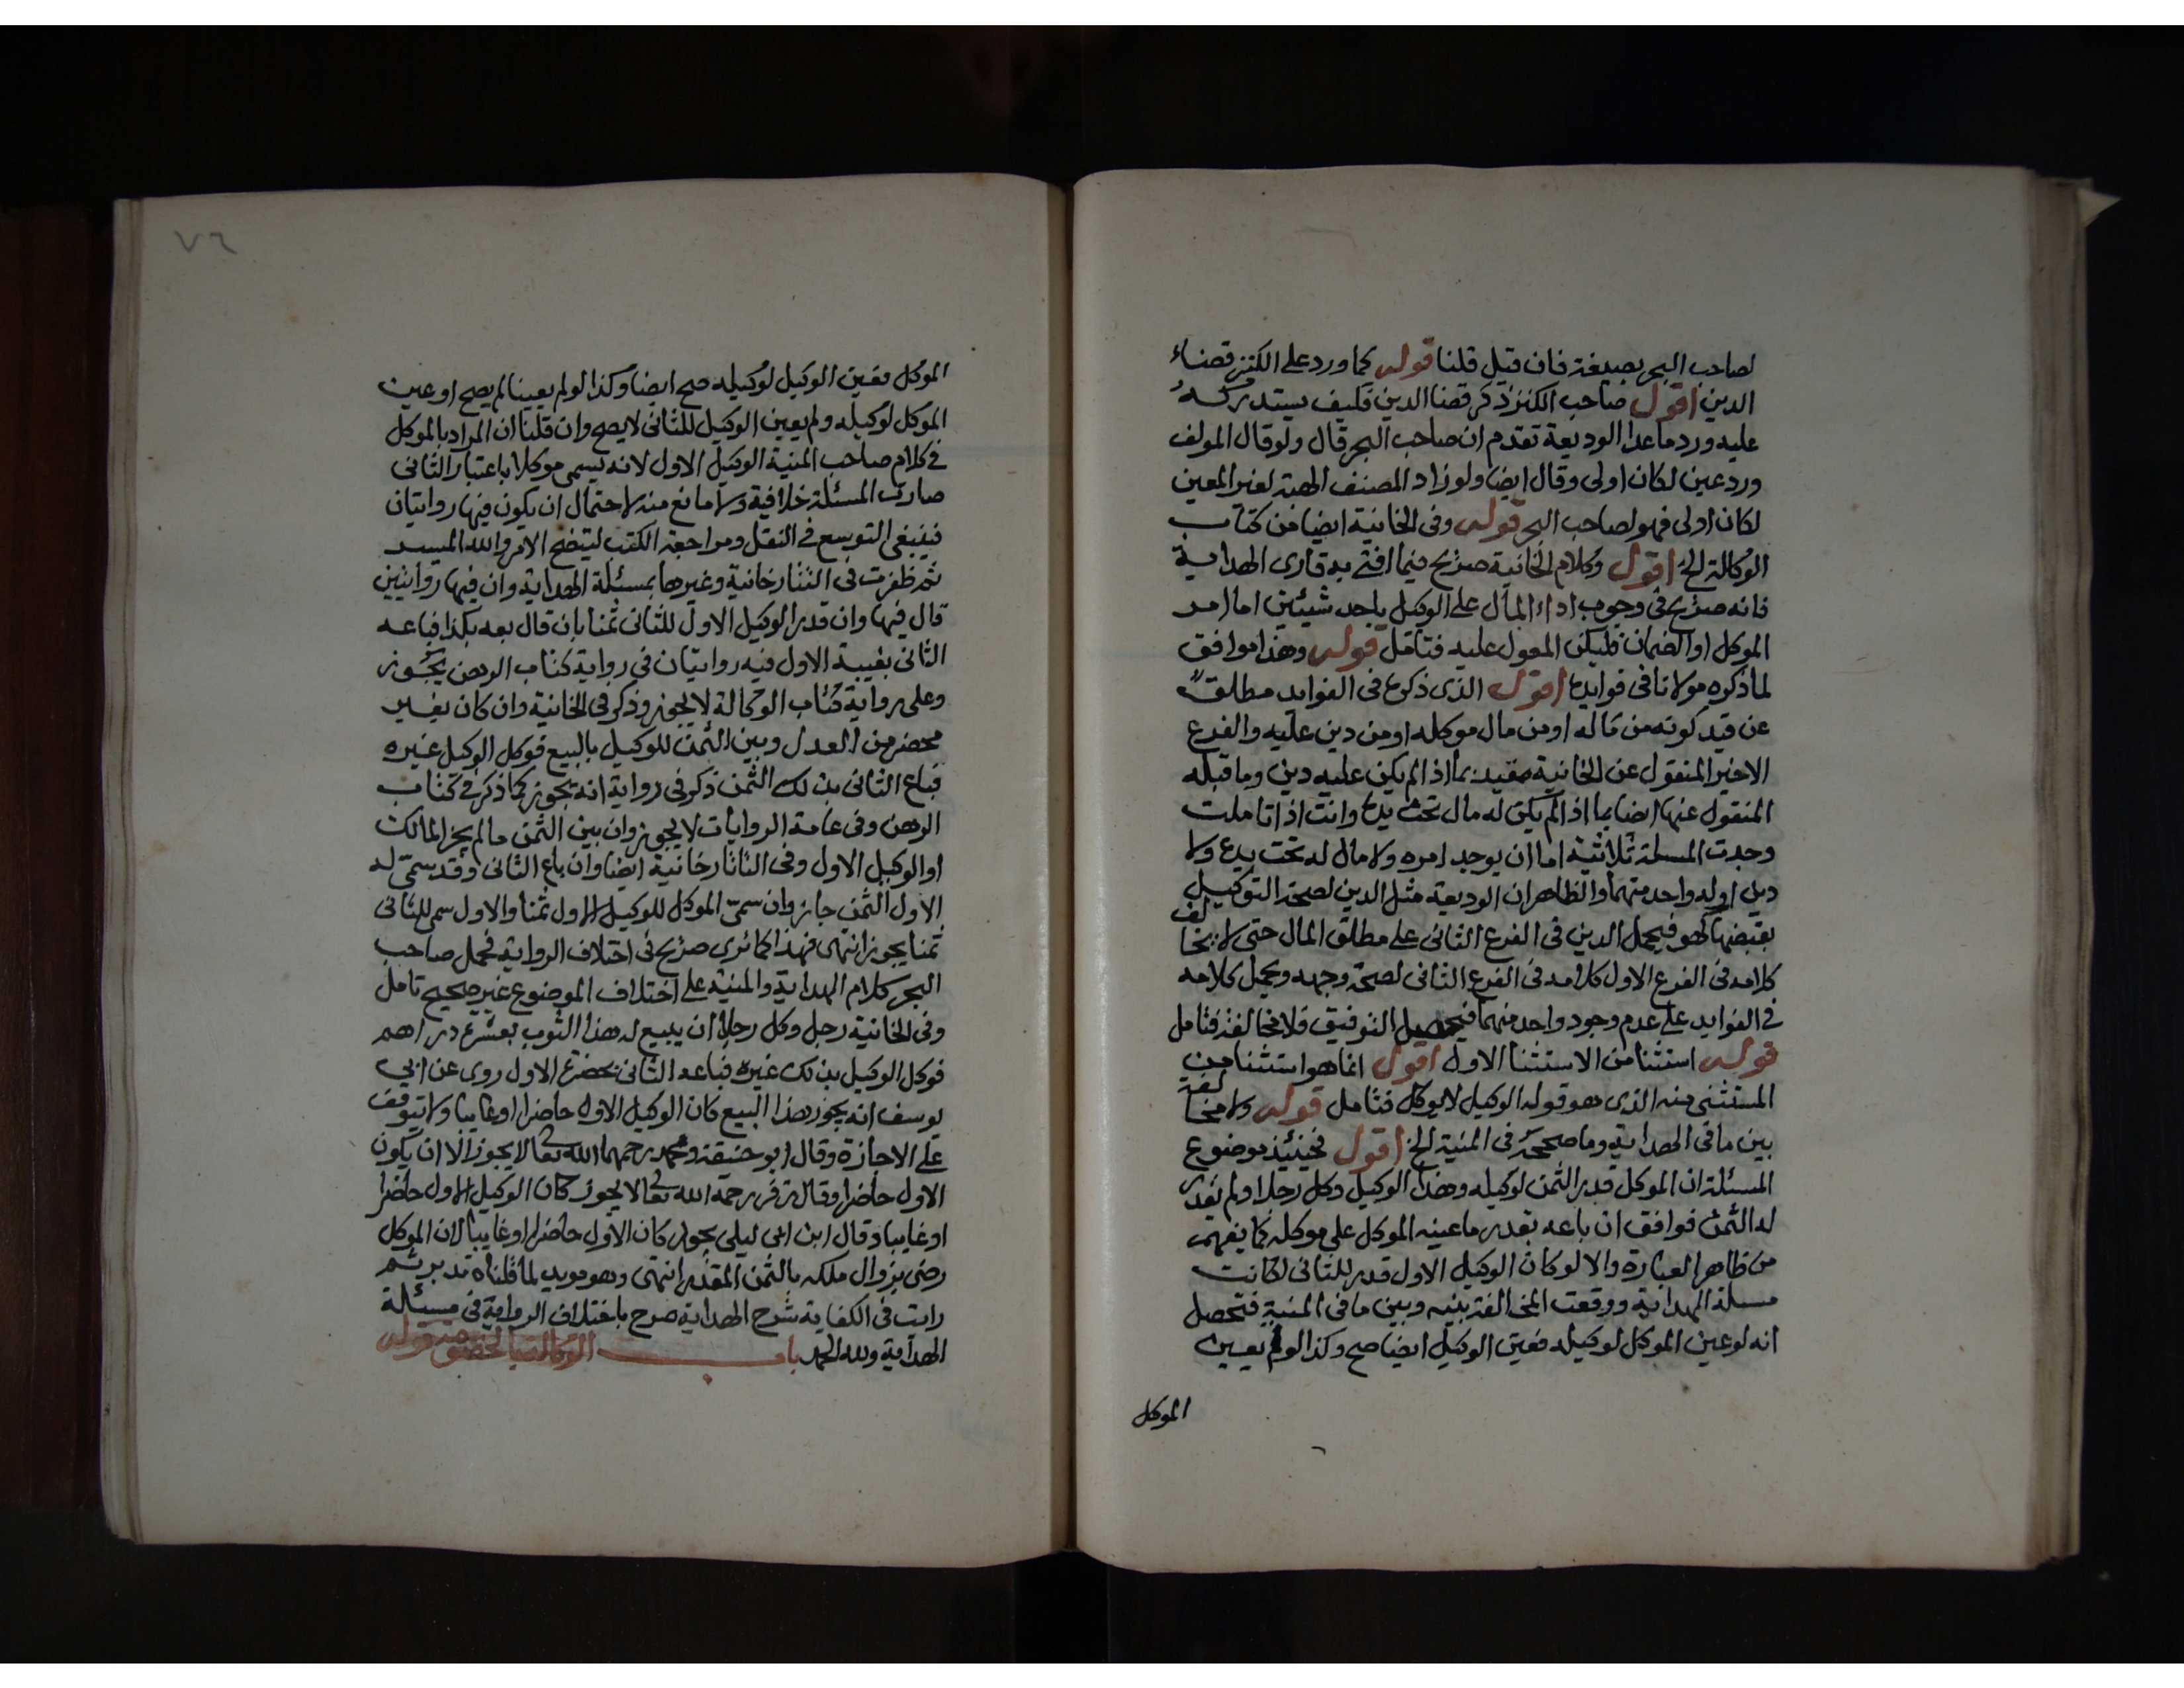 لصاحب البحر بصيغة فان قيل قلنا قوله كما ورد على الكنز قضاء
الدين اقول صاحب الكنز ذكر قضا الدين فكيف يستدركه
عليه ورد ماعدا الوديعة تقدم ان صاحب البحر قال ولوقال المولف
ورد عين لكان اولى وقال ايضا ولو زاد المصنف الهبة لغير المعين
لكان اولى فهو لصاحب البحر قوله وفى الخانية ايضا من كتاب
الوكالة الخ اقول وكلام الخانية صريح فيما افتى به قارى الهداية
فانه صريح فى وجوب اداء المال على الوكيل باحد شيئين اما امر
الموكل او الضمان فليكن المعول عليه فتامل قوله وهذا موافق
لما ذكره مولانا فى فوايده اقول الذى ذكره فى الفوايد مطلقا
عن قيد كونه من ماله او من مال موكله او من دين عليه والفرع
الاخير المنقول عن الخانية مقيد بما اذا لم يكن عليه دين وما قبله
المنقول عنها ايضا بما اذا لم يكن له مال تحت يده وانت اذا تاملت
وجدت المسئلة ثلاثية اما ان يوجد امره ولا مال له تحت يده ولا
دين او له واحد منهما والظاهر ان الوديعة مثل الدين لصحة التوكيل
بقبضها كهو فيحمل الدين فى الفرع الثانى على مطلق المال حتى لا يخالف
كلامه فى الفرع الاول كلامه فى الفرع الثانى لصحة وجهه ويحمل كلامه
فى الفوايد على عدم وجود واحد منهما فيحصل التوفيق فلا مخالفة فتامل
قوله استثنا من الاستثنا الاول اقول انما هو استثنا من
المستثنى منه الذى هو قوله الوكيل لا يوكل فتامل قوله ولا مخالفة
بين ما فى الهداية وما صححه فى المنية الخ اقول فحينئذ موضوع
المسئلة ان الموكل قدر الثمن لوكيله وهذا الوكيل وكل رجلا ولم يقدر
له الثمن فوافق ان باعه بقدر ما عينه الموكل على موكله كما يفهم
من ظاهر العبارة والا لو كان الوكيل الاول قدر للثانى لكانت
مسئلة الهداية ووقعت المخالفة بينه وبين ما فى المنية فتحصل
انه لو عين الموكل لوكيله فعين الوكيل ايضا صح وكذا لو لم يعين
الموكل
٧٦
الموكل فعين الوكيل لوكيله صح ايضا وكذا لو لم يعينا لم يصح او عين
الموكل لوكيله ولم يعين الوكيل للثانى لا يصح وان قلنا ان المراد بالموكل
فى كلام صاحب المنية الوكيل الاول لانه يسمى موكلا باعتبار الثانى
صارت المسئلة خلافية ولا مانع منه لاحتمال ان يكون فيها روايتان
فينبغى التوسع فى النقل ومراجعة الكتب ليتضح الامر والله الميسر
ثم ظفرت فى التتارخانية وغيرها بمسئلة الهداية وان فيها روايتين
قال فيها وان قدر الوكيل الاول للثانى ثمنا بان قال بعه بكذا فباعه
الثانى بغيبة الاول فيه روايتان فى رواية كتاب الرهن يجوز
وعلى رواية كتاب الوكالة لا يجوز وذكر فى الخانية وان كان بغير
محضر من العدل وبين الثمن للوكيل بالبيع فوكل الوكيل غيره
فباع الثانى بذلك الثمن ذكر فى رواية انه يجوز كما ذكر فى كتاب
الرهن وفى عامة الروايات لا يجوز وان بين الثمن مالم يجز المالك
او الوكيل الاول وفى التاتارخانية ايضا وان باع الثانى وقد سمى له
الاول الثمن جاز وان سمى الموكل للوكيل الاول ثمنا والاول سمى للثانى
ثمنا يجوز انتهى فهذا كما ترى صريح فى اختلاف الرواية فحمل صاحب
البحر كلام الهداية والمنية على اختلاف الموضوع غير صحيح تامل
وفى الخانية رجل وكل رجلا ان يبيع له هذا الثوب بعشرة دراهم
فوكل الوكيل بذلك غيره فباعه الثانى بحضرة الاول روى عن ابى
يوسف انه يجوز هذا البيع كان الوكيل الاول حاضرا او غايبا ولا يتوقف
على الاجازة وقال ابو حنيفة ومحمد رحمهما الله تعالى لا يجوز الا ان يكون
الاول حاضرا وقال زفر رحمه الله تعالى لا يجوز كان الوكيل الاول حاضرا
او غايبا وقال ابن ابى ليلى يجوز كان الاول حاضرا او غايبا لان الموكل
رضى بزوال ملكه بالثمن المقدر انتهى وهو مويد لما قلناه تدبر ثم
رايت فى الكفاية شرح الهداية صرح باختلاف الرواية فى مسئلة
الهداية ولله الحمد باب الوكالة بالخصومة قوله